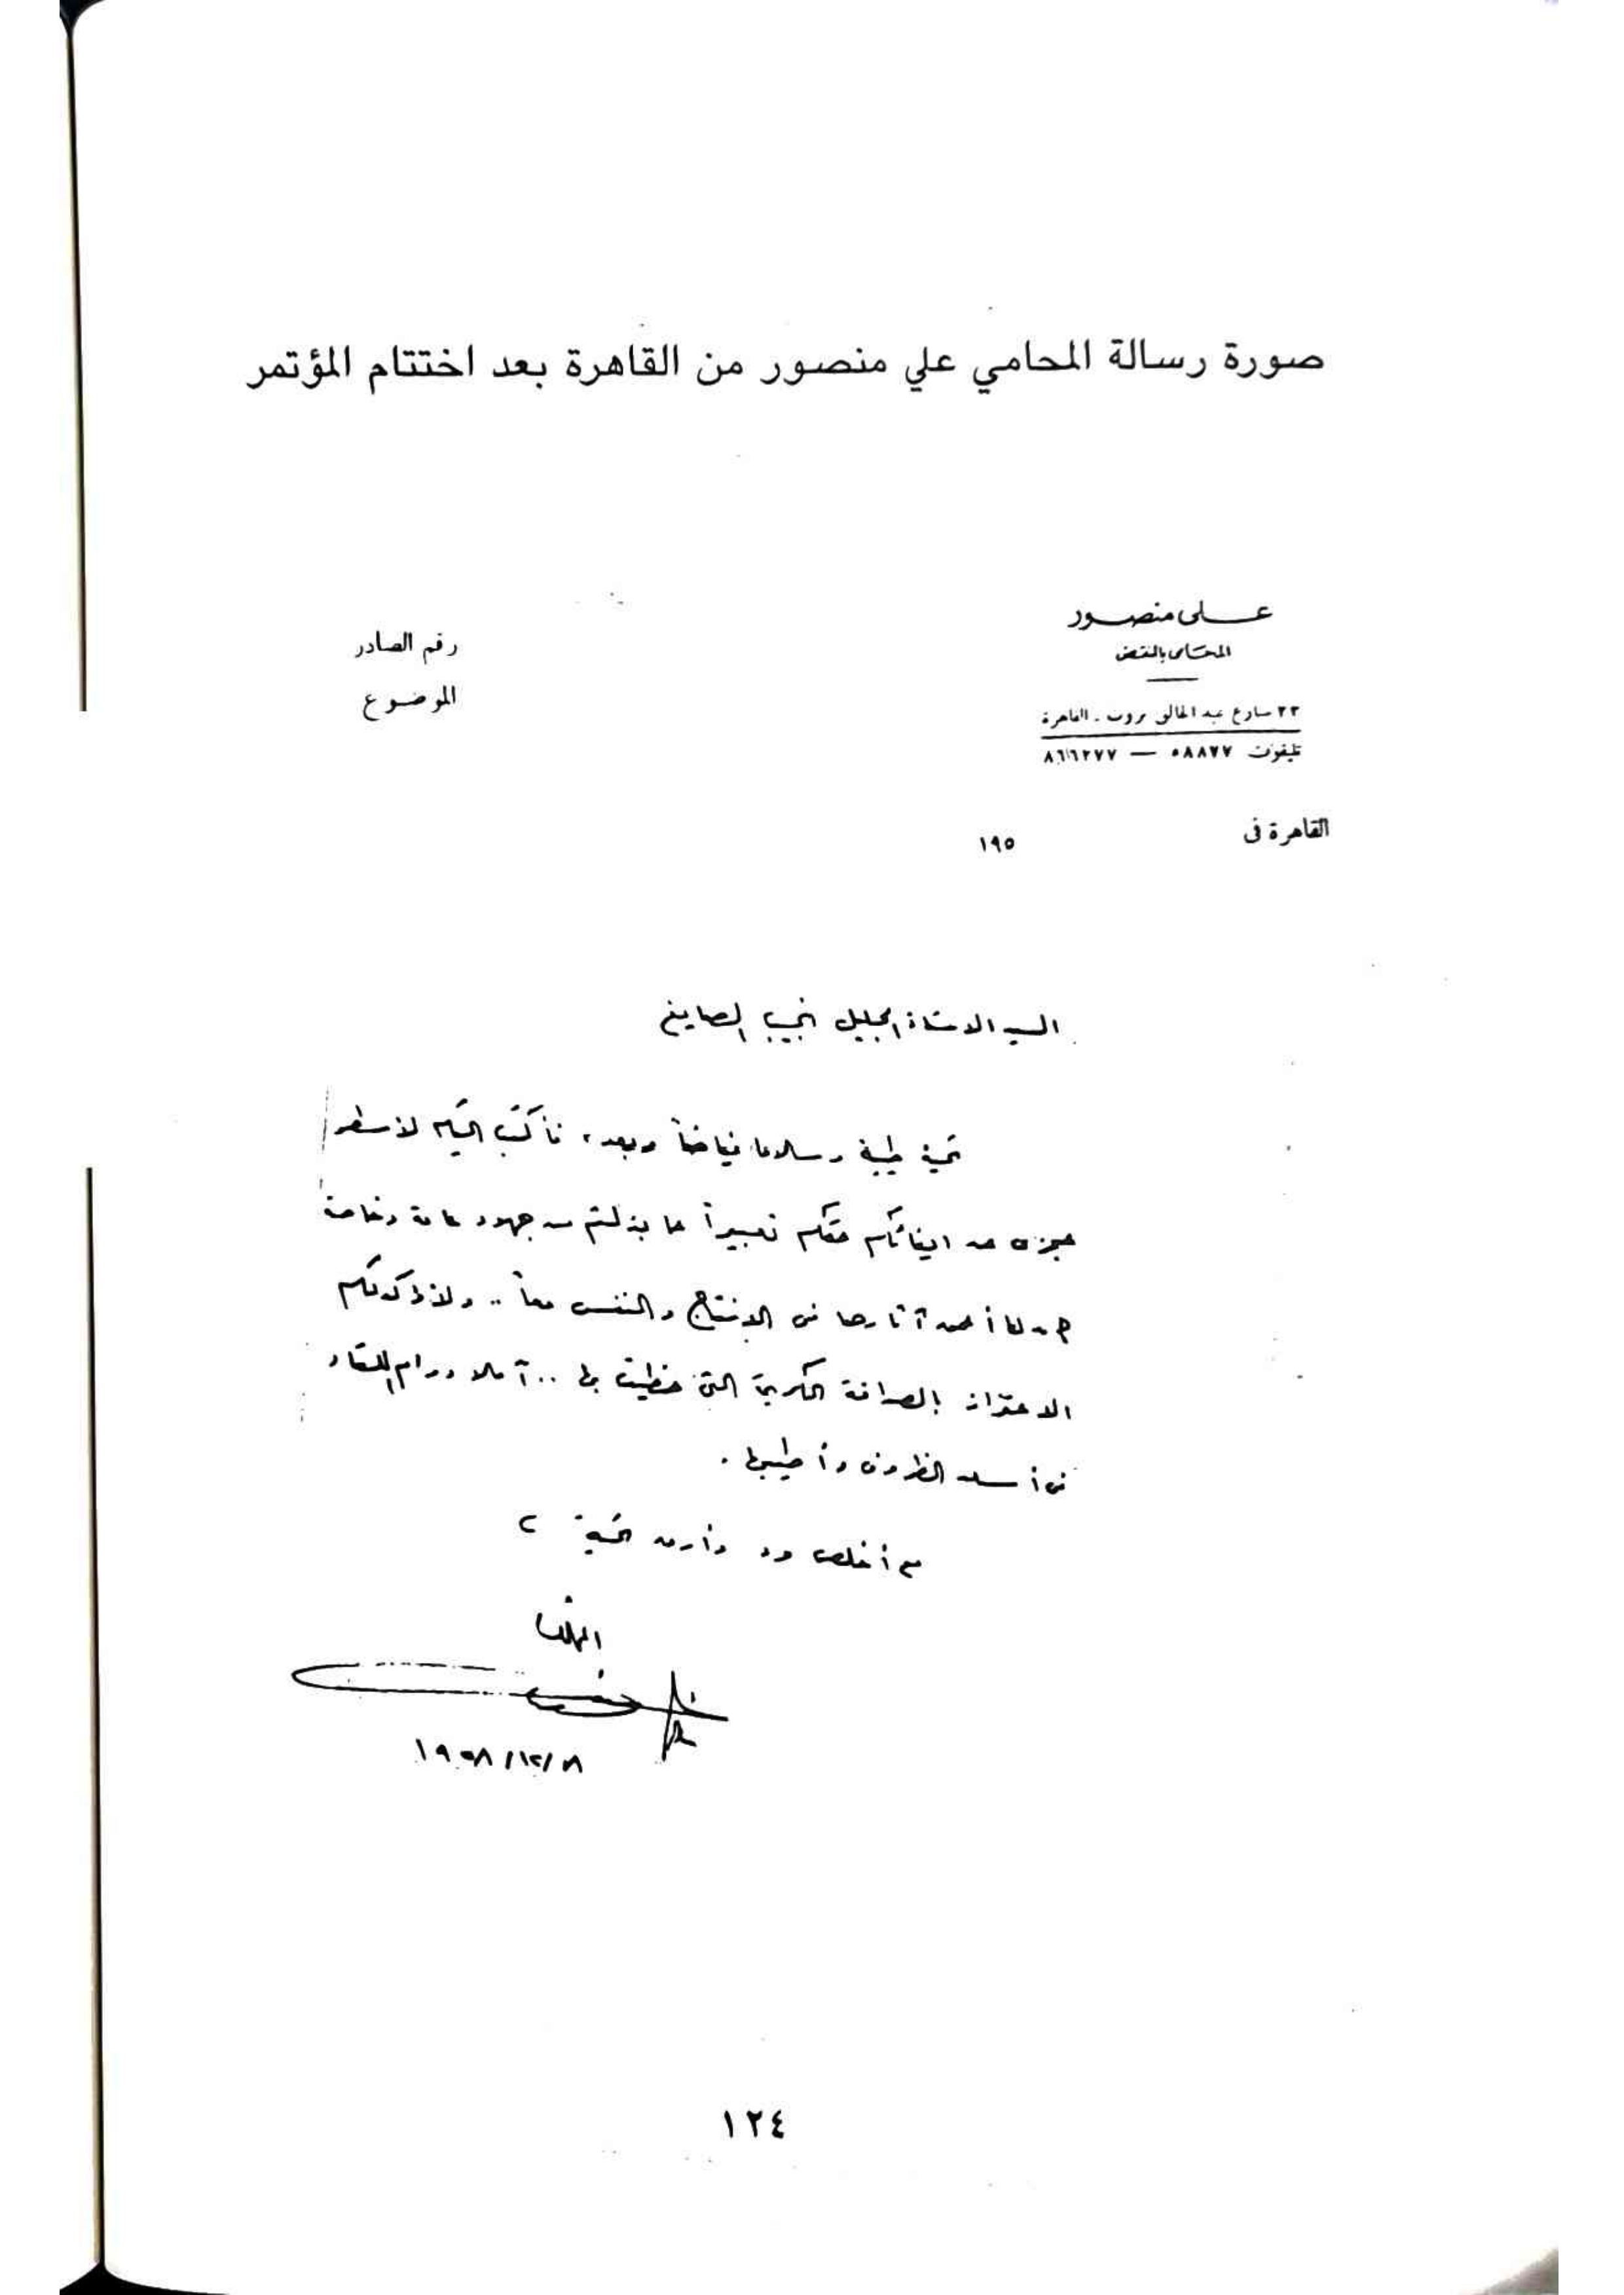 صورة رسالة المحامي علي منصور من القاهرة بعد اختتام المؤتمر
علی منصور
المحامى بالنقض
رقم الصادر
الموضوع
٢٢ شارع عبد الخالق ثروت - القاهرة
تليفون ٥٨٨٧٧ — ٨٦٦٢٧٧
القاهرة فى ١٩٥
السيد الاستاذ الجليل نجيب الصايغ
تحية طيبة وسلاما فياضاً وبعد، فأكتب اليكم لأسطر
عجزى عن ايفائكم حقكم تعبيراً عما بذلتم من جهود عامة وخاصة
كان لها أحسن آثارها فى الانتاج والنفس معاً .. ولأذكر لكم
الاعتزاز بالصداقة الكريمة التى حظيت بها .. آملا دوام اللقاء
فى أسعد الظروف وأطيبها .
مع أخلص ود وأرق تحية
المخلص
١٩٥٨/١٢/٨
١٢٤